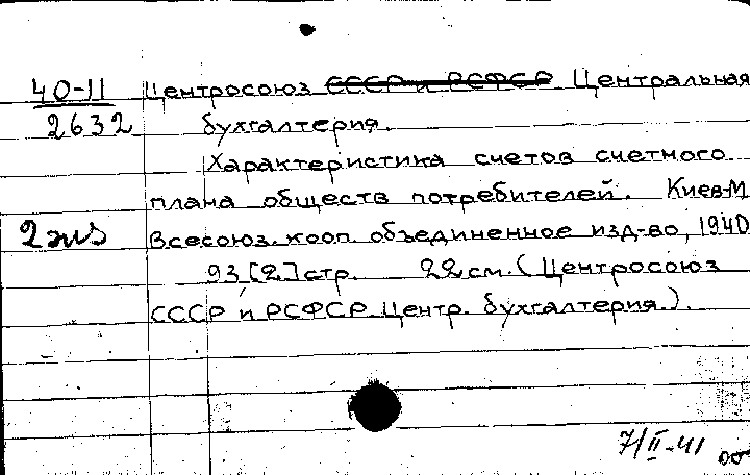 40-11 Центросоюз СССР и РСФСР. Центральная
2632 бухгалтерия.
Характеристика счетов счетного
плана обществ потребителей. Киев-М
2 экз Всесоюз. кооп. объединенное изд-во, 1940
93 [2] стр. 22 см. (Центросоюз
СССР и РСФСР. Центр. бухгалтерия.).
7/II-41